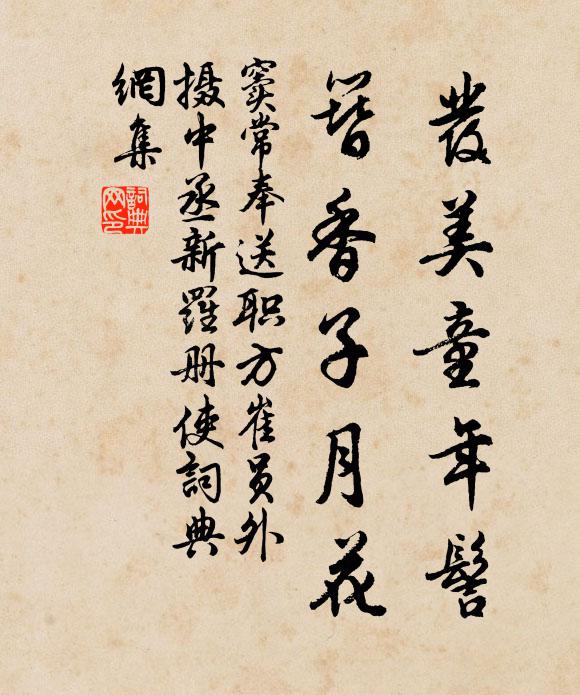 發美童年髻
簪香子月花
窦常奉送职方崔员外
摄中丞新羅册使詞典
網集
詞典
网印